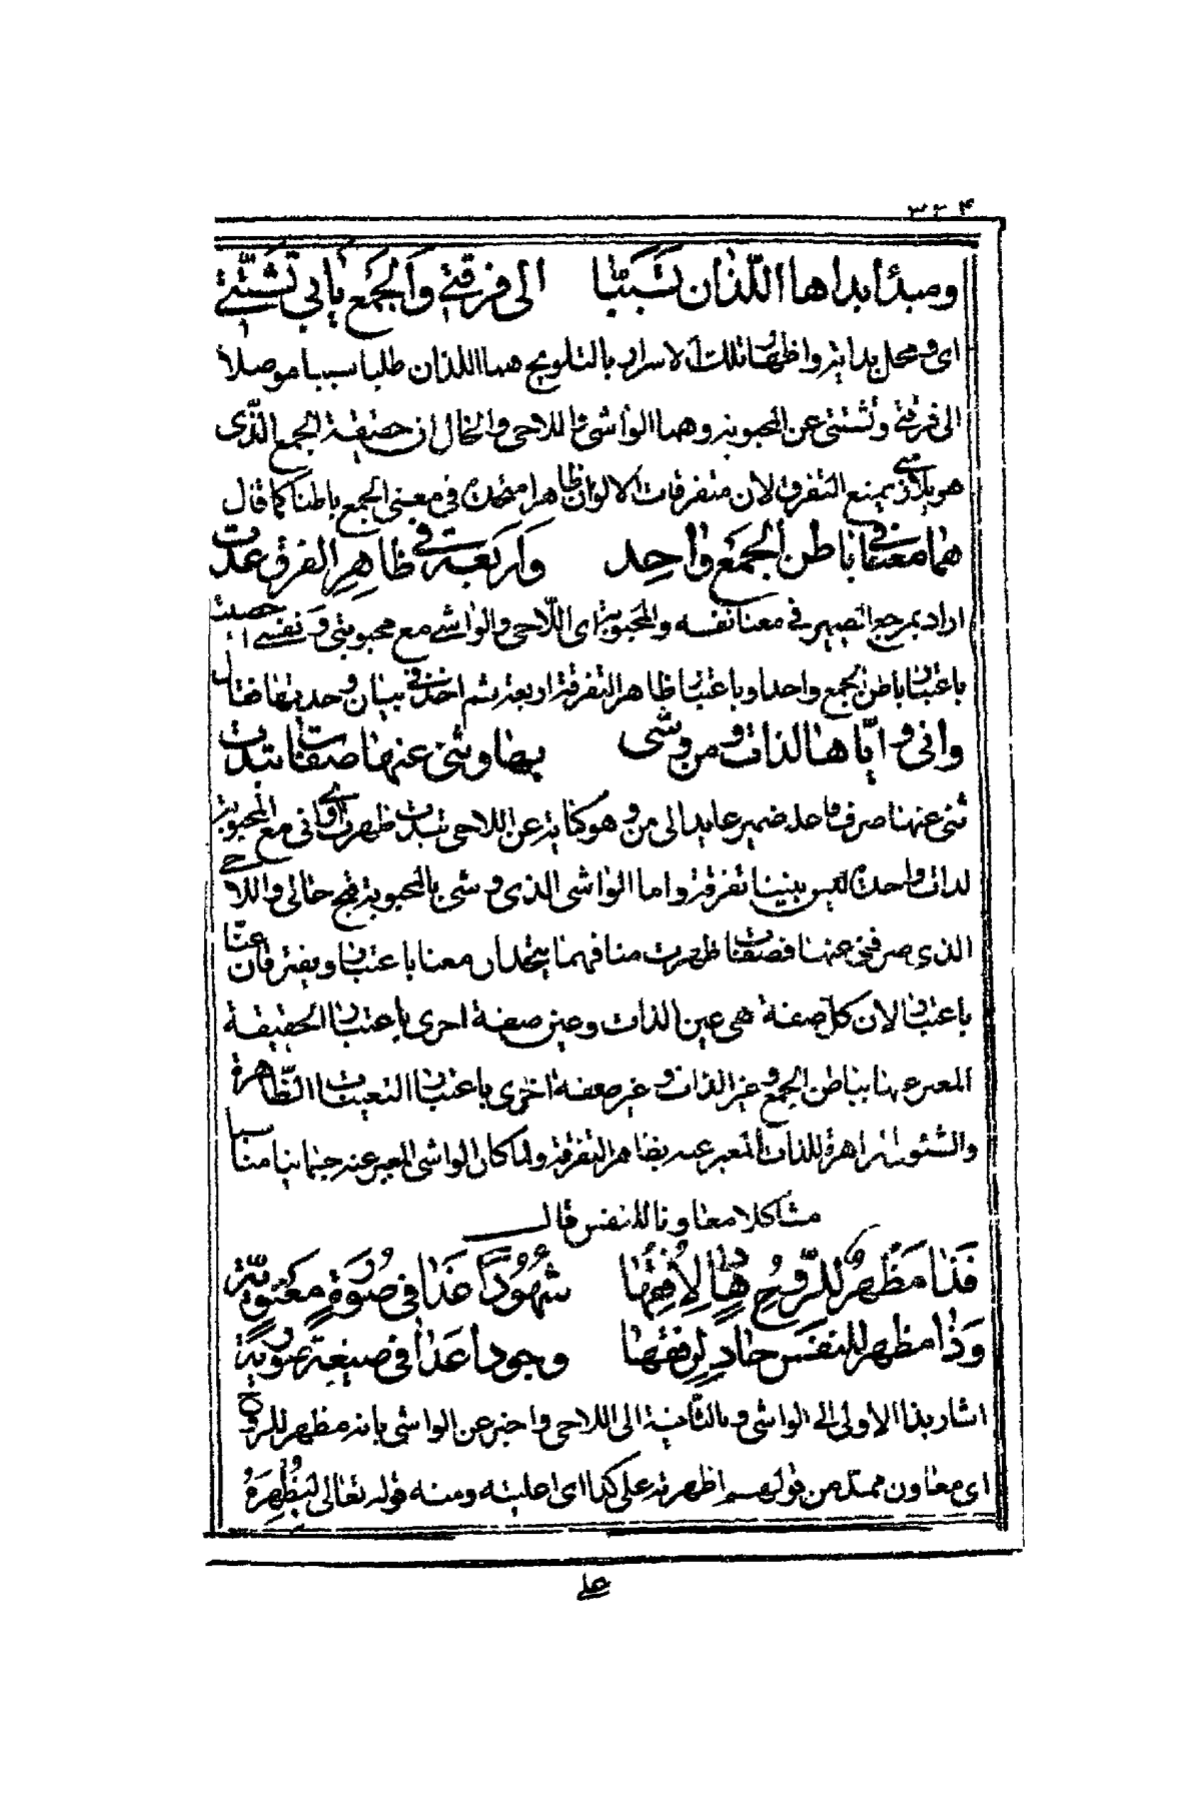 ۳۲۴
ومبدأ ابداها اللذان تسببا الى فرقتي والجمع يابى تشتتي
اى ومحل بدايته واظهار تلك الاسرار بالتلويح هما اللذان طلبا سببا موصلا
الى فرقتى وتشتتى عن المحبوبة وهما الواشى واللاحى والحال ان حقيقة الجمع الذى
هو يمنع التفرق لان متفرقات الالوان ظاهرا متحدة فى معنى الجمع باطنا كما قال
هما معنا فى باطن الجمع واحد واربعة فى ظاهر الفرق عدت
اراد بمرجع الضمير فى معنا نفسه والمحبوبة اى اللاحى والواشى مع محبوبتى ونفسى
باعتبار باطن الجمع واحد وباعتبار ظاهر التفرقة اربعة ثم اخذ فى بيان وحديتها فقال
وانى واياها لذات ومن وشى بها وثنى عنها صفات تبدت
ثنى عنها صرف واحد ضمير عايد الى من وهو كناية عن اللاحى تبدت ظهرت اى وانى مع المحبوبة
لذات واحدة ليس بيننا تفرقة واما الواشى الذى وشى بالمحبوبة حالى واللاحى
الذى صرفنى عنها فصفات ظهرت منا فهما يتحدان معنا باعتبار ويفترقان عنا
باعتبار لان كل صفة هى عين الذات وعين صفة اخرى باعتبار الحقيقة
المعبر عنها بباطن الجمع وغير الذات وغير صفة اخرى باعتبار التعينات الظاهرة
والشئون الزاهرة للذات المعبر عنه بظاهر التفرقة ولما كان الواشى المعبر عنه مناسبا
مشاكلا معاونا للنفس قال
فذا مظهر للروح هاد لافقها شهودا غدا فى صورة معنوية
وذا مظهر للنفس حاد لرفقها وجودا غدا فى صيغة صورية
اشار بذا الاولى الى الواشى وبالثانية الى اللاحى واخبر عن الواشى بانه مظهر للروح
اى معاون ممد من قولهم اظهرته على كذا اى اعليته ومنه قوله تعالى ليظهره
على